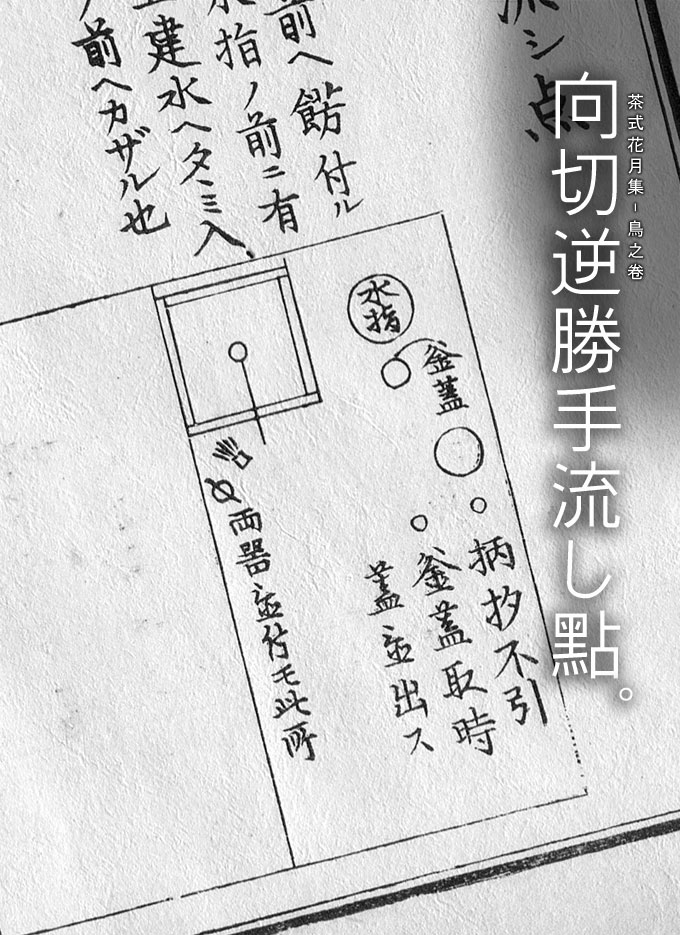 茶式花月集－鳥之巻
向切逆勝手流し點。
流シ点
前ヘ餝付ル
水指ノ前ニ有
建水ヘタヽミ入、
前ヘカザル也
水指
釜蓋
柄杓不引
釜蓋取時
蓋並出ス
両器並付モ此所